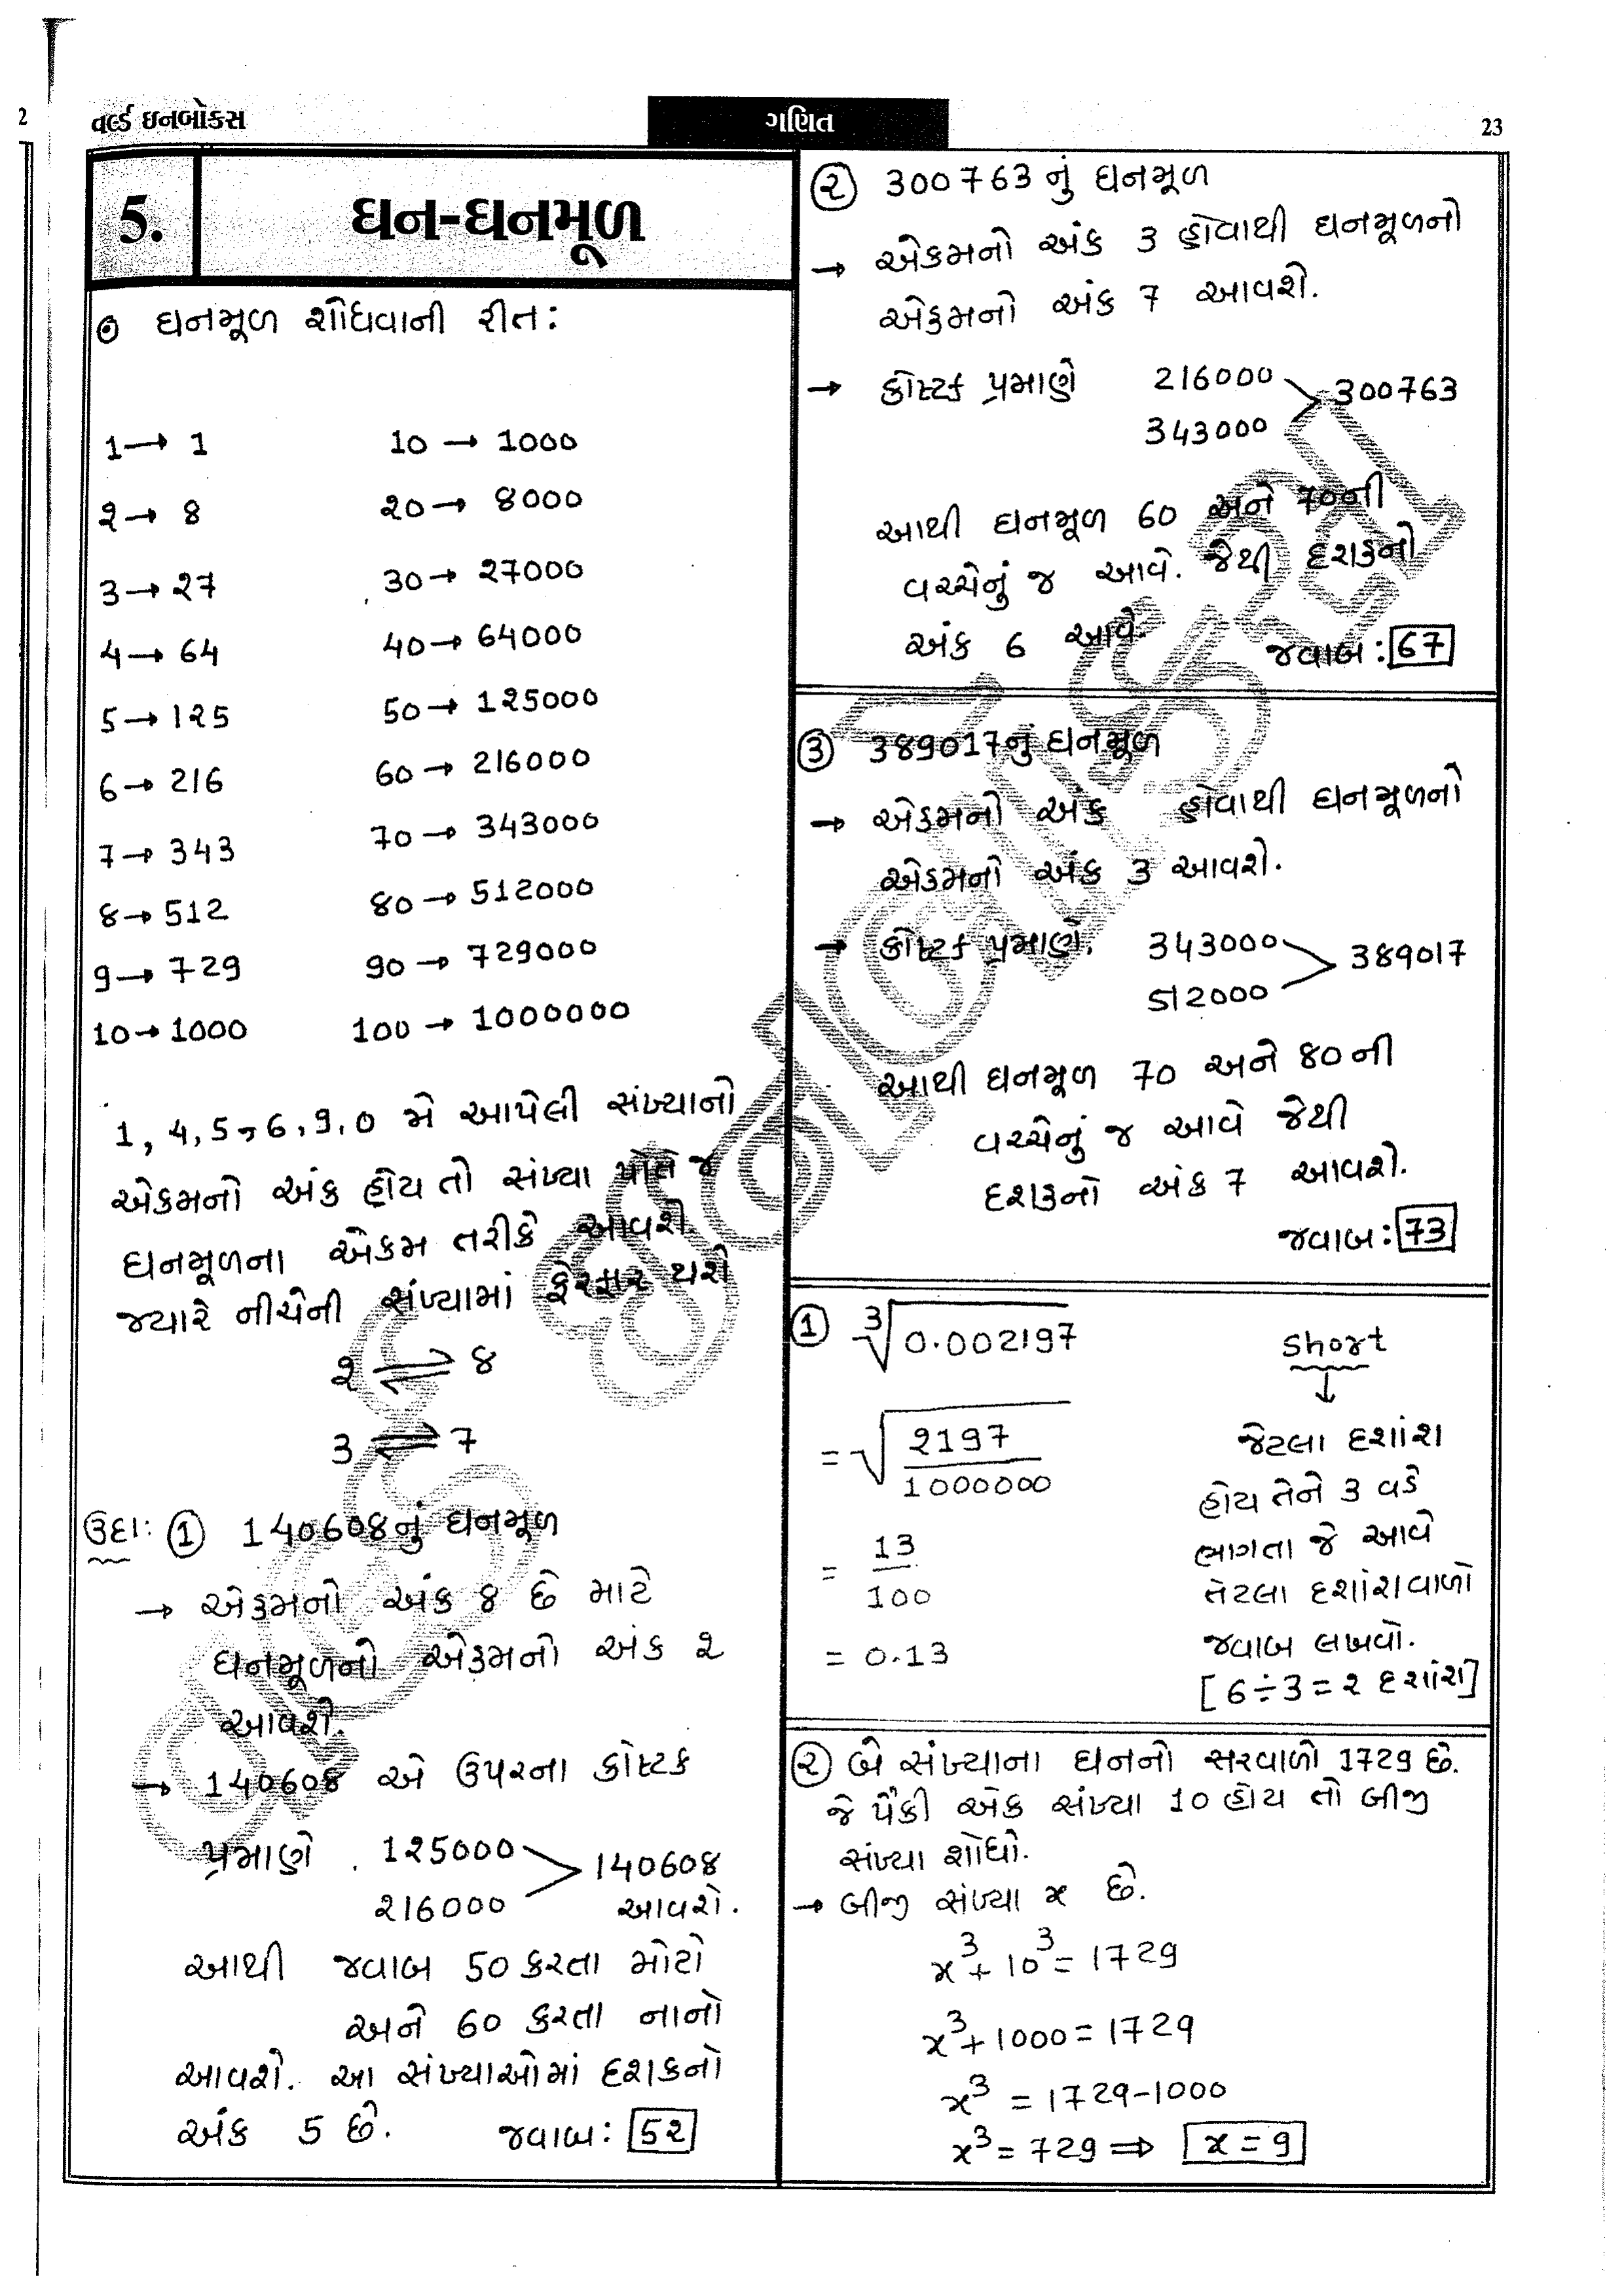 2
વર્લ્ડ ઇનબોક્સ
ગણિત
23
5.
ઘન-ઘનમૂળ
ઘનમૂળ શોધવાની રીત:
1→ 1
10 → 1000
2→ 8
20→ 8000
3→27
30→ 27000
4→ 64
40→ 64000
5→125
50→ 125000
6→ 216
60→ 216000
7→ 343
70→ 343000
8→ 512
80→ 512000
9→ 729
90→ 729000
10→1000
100→ 1000000
1, 4, 5, 6, 9, 0 એ આપેલી સંખ્યાનો
એકમનો અંક હોય તો સંખ્યા પોતે જ
ઘનમૂળના એકમ તરીકે આવશે.
જ્યારે નીચેની સંખ્યામાં ફેરફાર થશે
2 ⇌ 8
3 ⇌ 7
ઉદા: ① 140608નું ઘનમૂળ
→ એકમનો અંક 8 છે માટે
ઘનમૂળનો એકમનો અંક 2
આવશે.
→ 140608 એ ઉપરના કોષ્ટક
પ્રમાણે 125000
140608
216000
આવશે.
આથી જવાબ 50 કરતા મોટો
અને 60 કરતા નાનો
આવશે. આ સંખ્યાઓમાં દશકનો
અંક 5 છે. જવાબ: 52
② 300763નું ઘનમૂળ
→ એકમનો અંક 3 હોવાથી ઘનમૂળનો
એકમનો અંક 7 આવશે.
→ કોષ્ટક પ્રમાણે 216000
300763
343000
આથી ઘનમૂળ 60 અને 70ની
વચ્ચેનું જ આવે. જેથી દશકનો
અંક 6 આવે.
જવાબ: 67
③ 389017નું ઘનમૂળ
→ એકમનો અંક હોવાથી ઘનમૂળનો
એકમનો અંક 3 આવશે.
→ કોષ્ટક પ્રમાણે. 343000
389017
512000
આથી ઘનમૂળ 70 અને 80ની
વચ્ચેનું જ આવે જેથી
દશકનો અંક 7 આવશે.
જવાબ: 73
① ∛0.002197
= √2197/1000000
= 13/100
= 0.13
Short
↓
જેટલા દશાંશ
હોય તેને 3 વડે
ભાગતા જે આવે
તેટલા દશાંશવાળો
જવાબ લખવો.
[6÷3=2 દશાંશ]
② બે સંખ્યાના ઘનનો સરવાળો 1729 છે.
જે પૈકી એક સંખ્યા 10 હોય તો બીજી
સંખ્યા શોધો.
→ બીજી સંખ્યા x છે.
x³+10³=1729
x³+1000=1729
x³=1729-1000
x³=729⇒ x=9